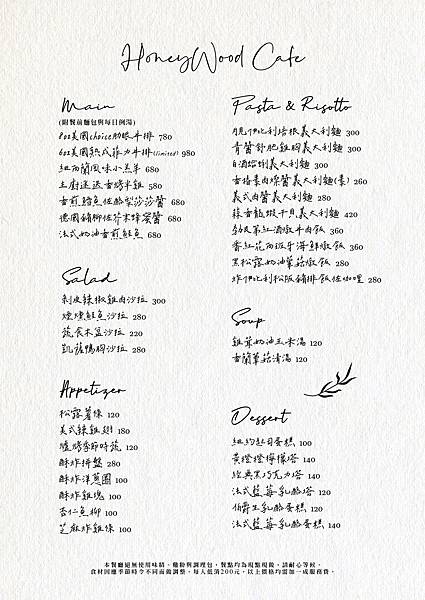 HoneyWood Cafe
Main
(附餐前麵包與每日例湯)
8oz美國choice肋眼牛排 780
6oz美國熟式菲力牛排(limited) 980
紐西蘭風味小羔羊 680
主廚迷迭香烤半雞 580
香煎鱸魚佐酪梨莎莎醬 680
德國豬腳佐芥末蜂蜜醬 680
法式奶油香煎鮭魚 680
Salad
剝皮辣椒雞肉沙拉 300
煙燻鮭魚沙拉 280
蔬食木盆沙拉 220
凱薩鴨胸沙拉 280
Appetizer
松露薯條 120
美式辣雞翅 180
爐烤季節時蔬 120
酥炸拼盤 280
酥炸洋蔥圈 100
酥炸雞塊 100
杏仁魚柳 100
芝麻炸雞條 100
Pasta & Risotto
伊比利培根義大利麵 300
青醬舒肥雞胸義大利麵 300
白酒蛤蜊義大利麵 300
義大利麵(素) 260
義式肉醬義大利麵 260
蒜香龍蝦干貝義大利麵 420
紅酒燉牛肉飯 360
番紅花西班牙海鮮燉飯 360
黑松露奶油蕈菇燉飯 280
炸伊比利松阪豬排飯佐咖哩 280
Soup
雞茸奶油玉米湯 120
香蘭蕈菇清湯 120
Dessert
紐約起司蛋糕 100
黃橙橙檸檬塔 140
經典黑巧克力塔 140
法式藍莓乳酪塔 120
伯爵生乳酪蛋糕 120
法式藍莓乳酪蛋糕 140
本餐廳絕無使用味精、雞粉與調理包，餐點均為現點現做，請耐心等候。
食材因應季節時令不同而做調整。每人低消200元，以上價格均需加一成服務費。